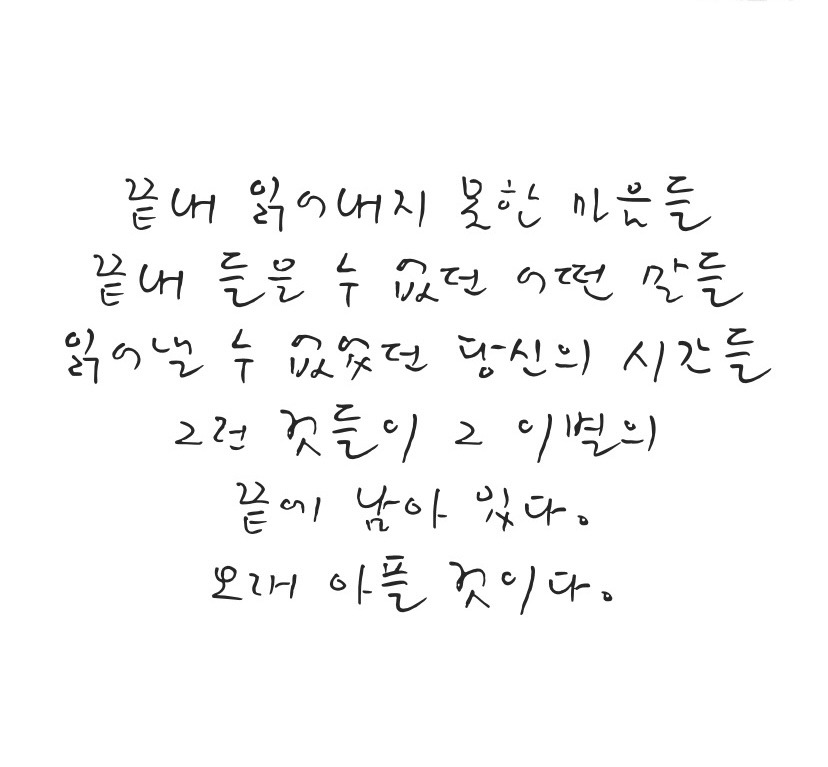 끝내 읽어내지 못한 마음들
끝내 들을 수 없던 어떤 말들
읽어낼 수 없었던 당신의 시간들
그런 것들이 그 이별의
끝에 남아 있다.
오래 아플 것이다.